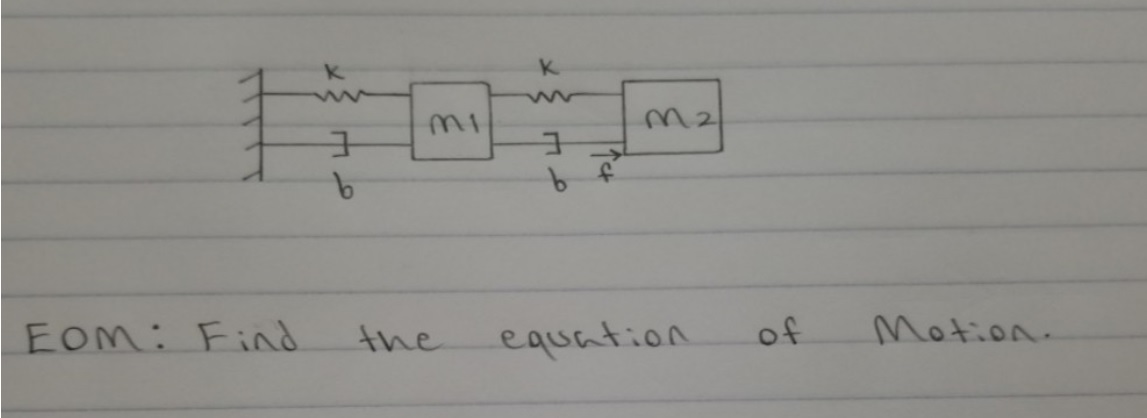 k k
m1 m2
b b f
EOM: Find the equation of Motion.